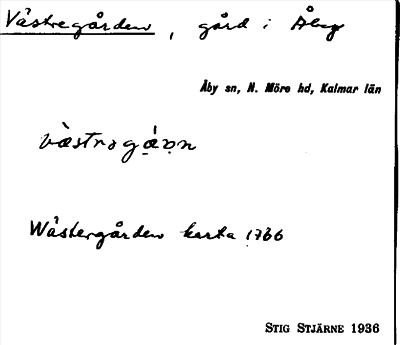 Västregården, gård i Åby
Åby sn, N. Möre hd, Kalmar län
Wästergården karta 1766
STIG STJÄRNE 1936